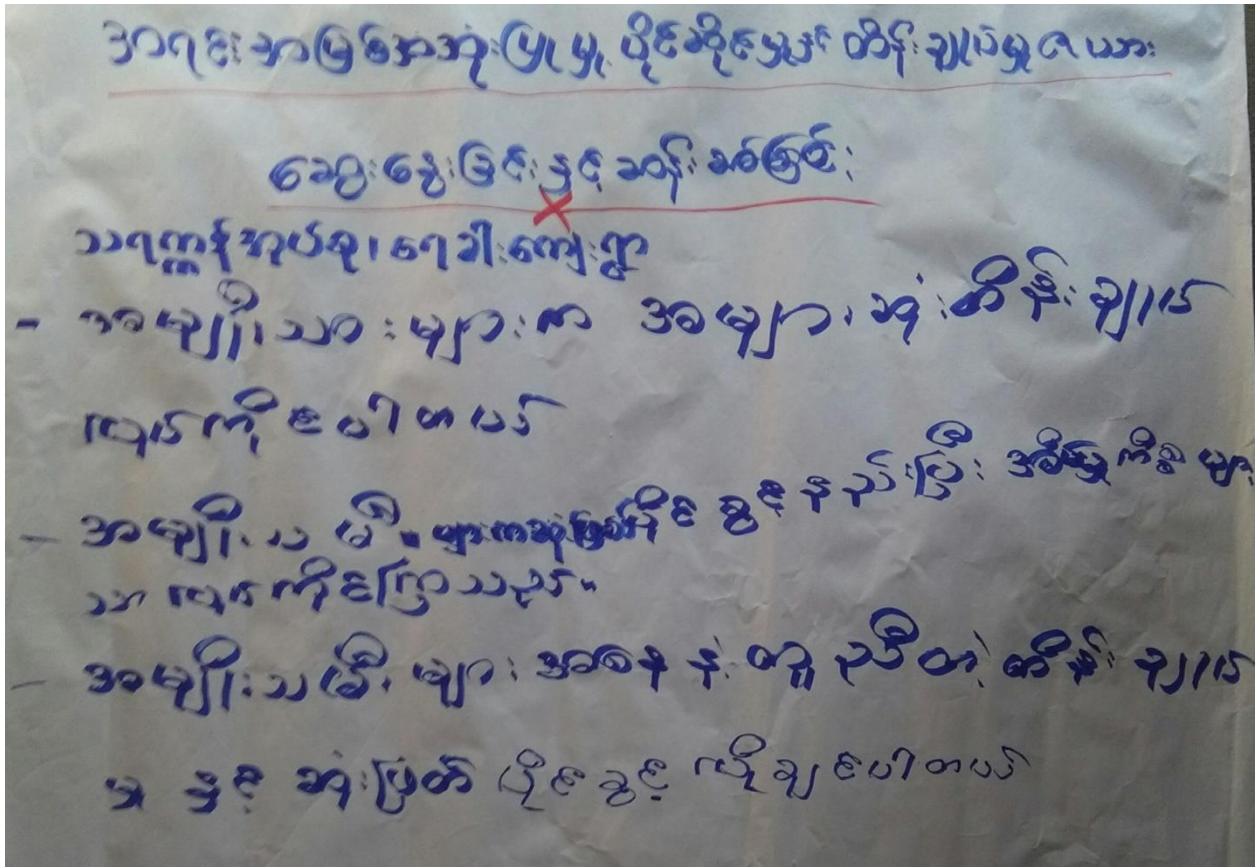 အရင်းအမြစ်အသုံးပြုမှု, ပိုင်ဆိုင်မှုနှင့် ထိန်းချုပ်မှုဇယား
ဆွေးနွေးခြင်းနှင့်ဆန်းစစ်ခြင်း
သရက္ကန်အုပ်စု၊ ရေခါးကျေးရွာ
- အမျိုးသားများက အများဆုံးထိန်းချုပ်
ကိုင်ပါတယ်
- အမျိုးသမီးများကဆုံးဖြတ်ပိုင်ခွင့်နည်းပြီး အိမ်မှုကိစ္စများ
သာ ကိုင်ကြသည်။
- အမျိုးသမီးများအနေနဲ့ တူညီတဲ့ ထိန်းချုပ်
မှုနှင့် ဆုံးဖြတ်ပိုင်ခွင့် လိုချင်ပါတယ်